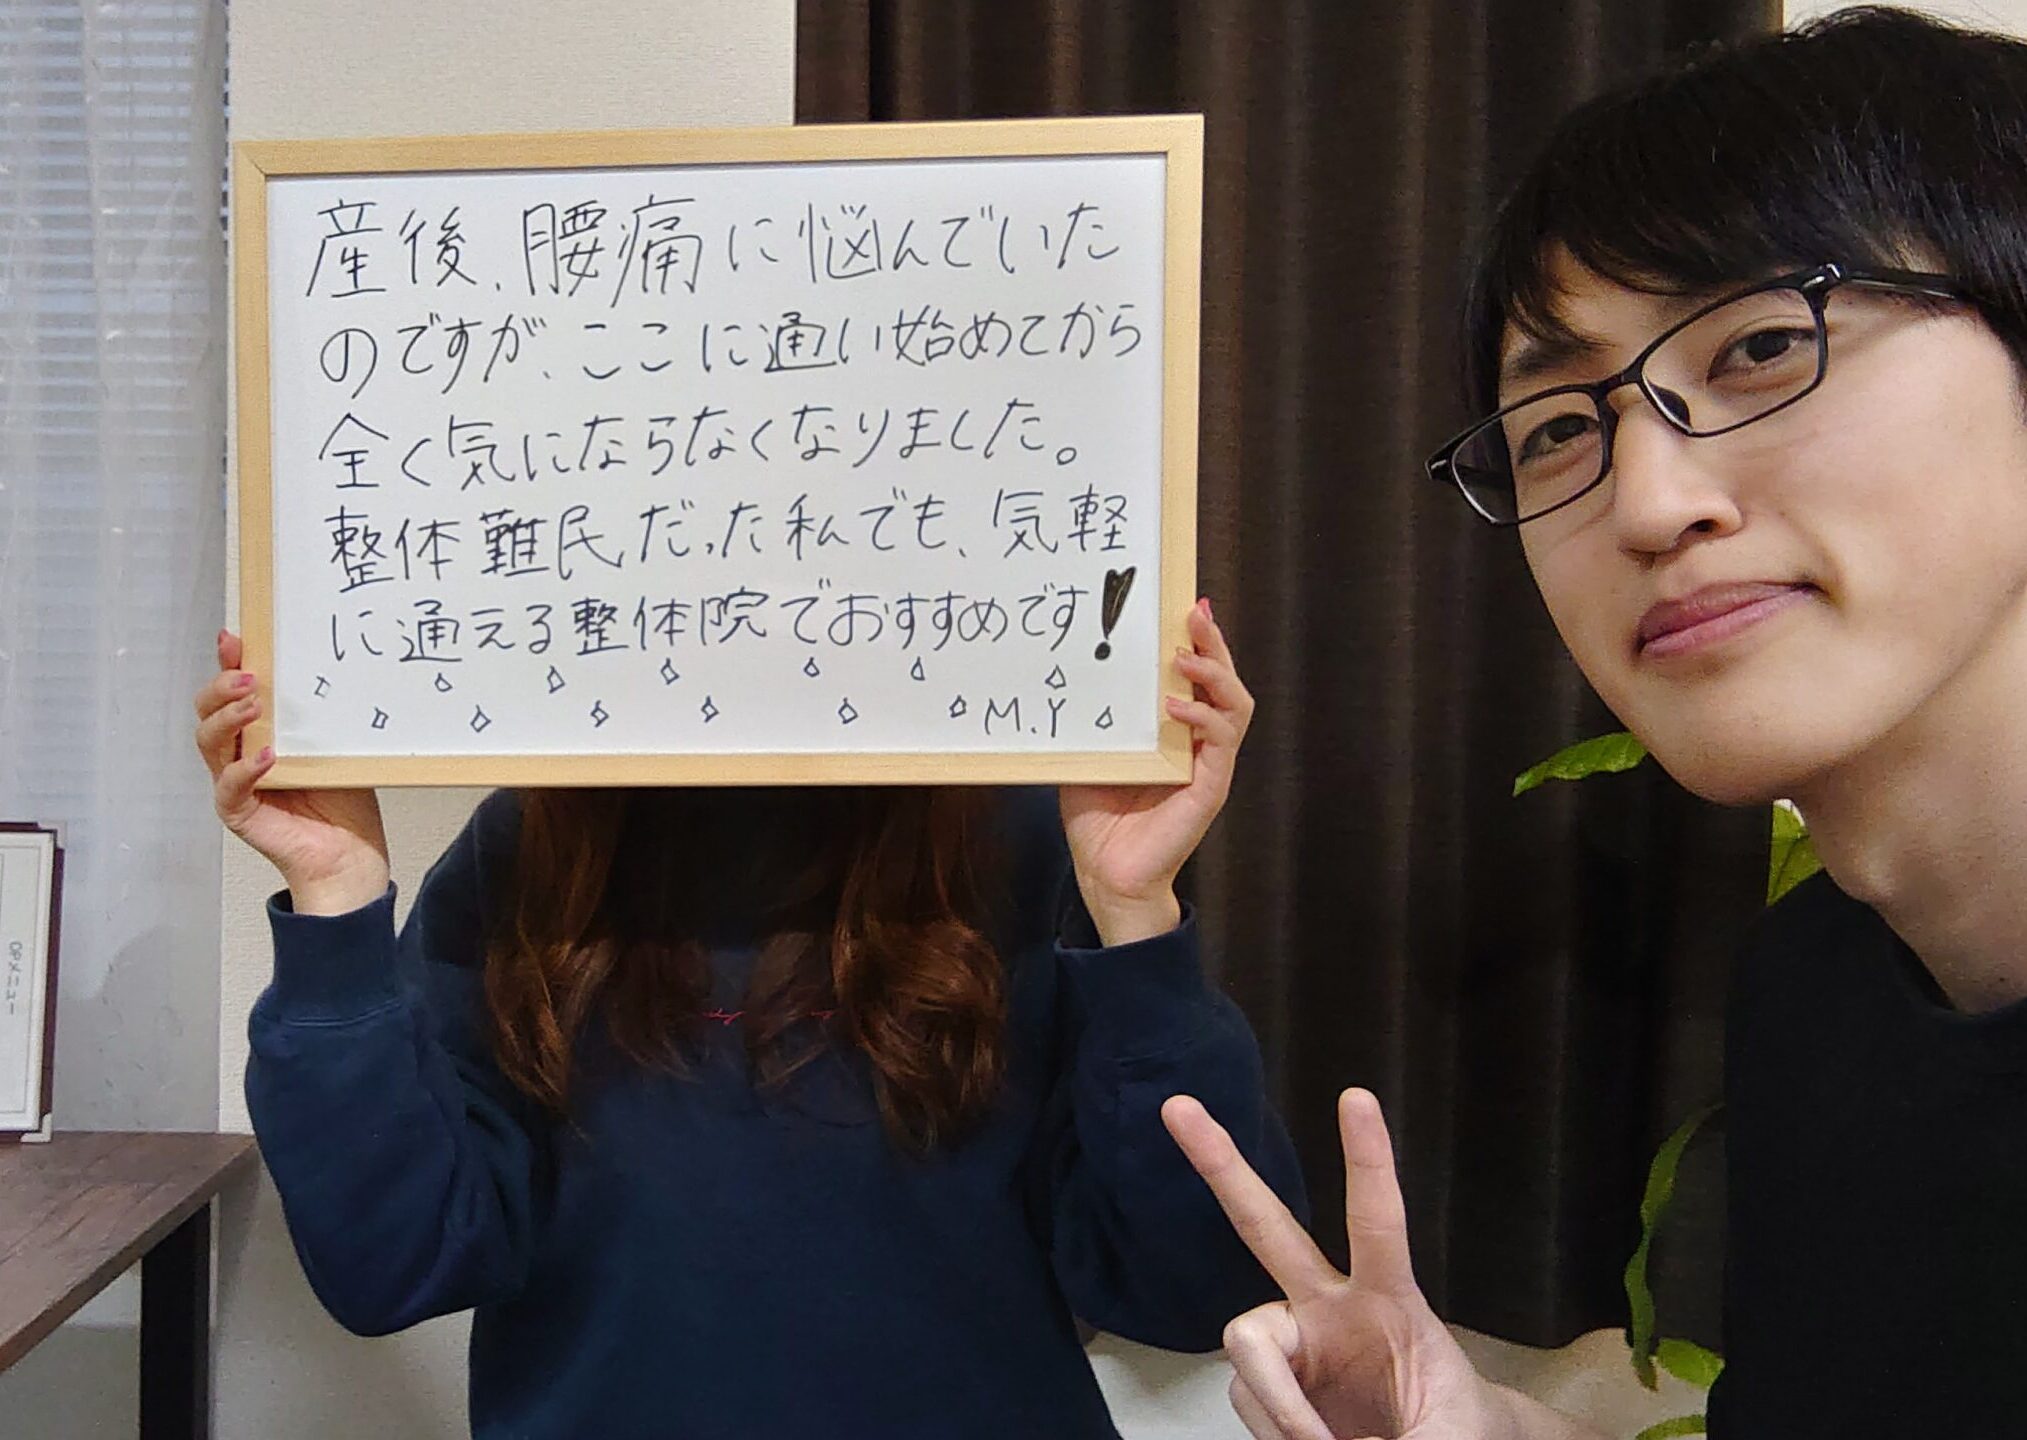 産後、腰痛に悩んでいた
のですが、ここに通い始めてから
全く気にならなくなりました。
整体難民だった私でも、気軽
に通える整体院でおすすめです!
M.Y